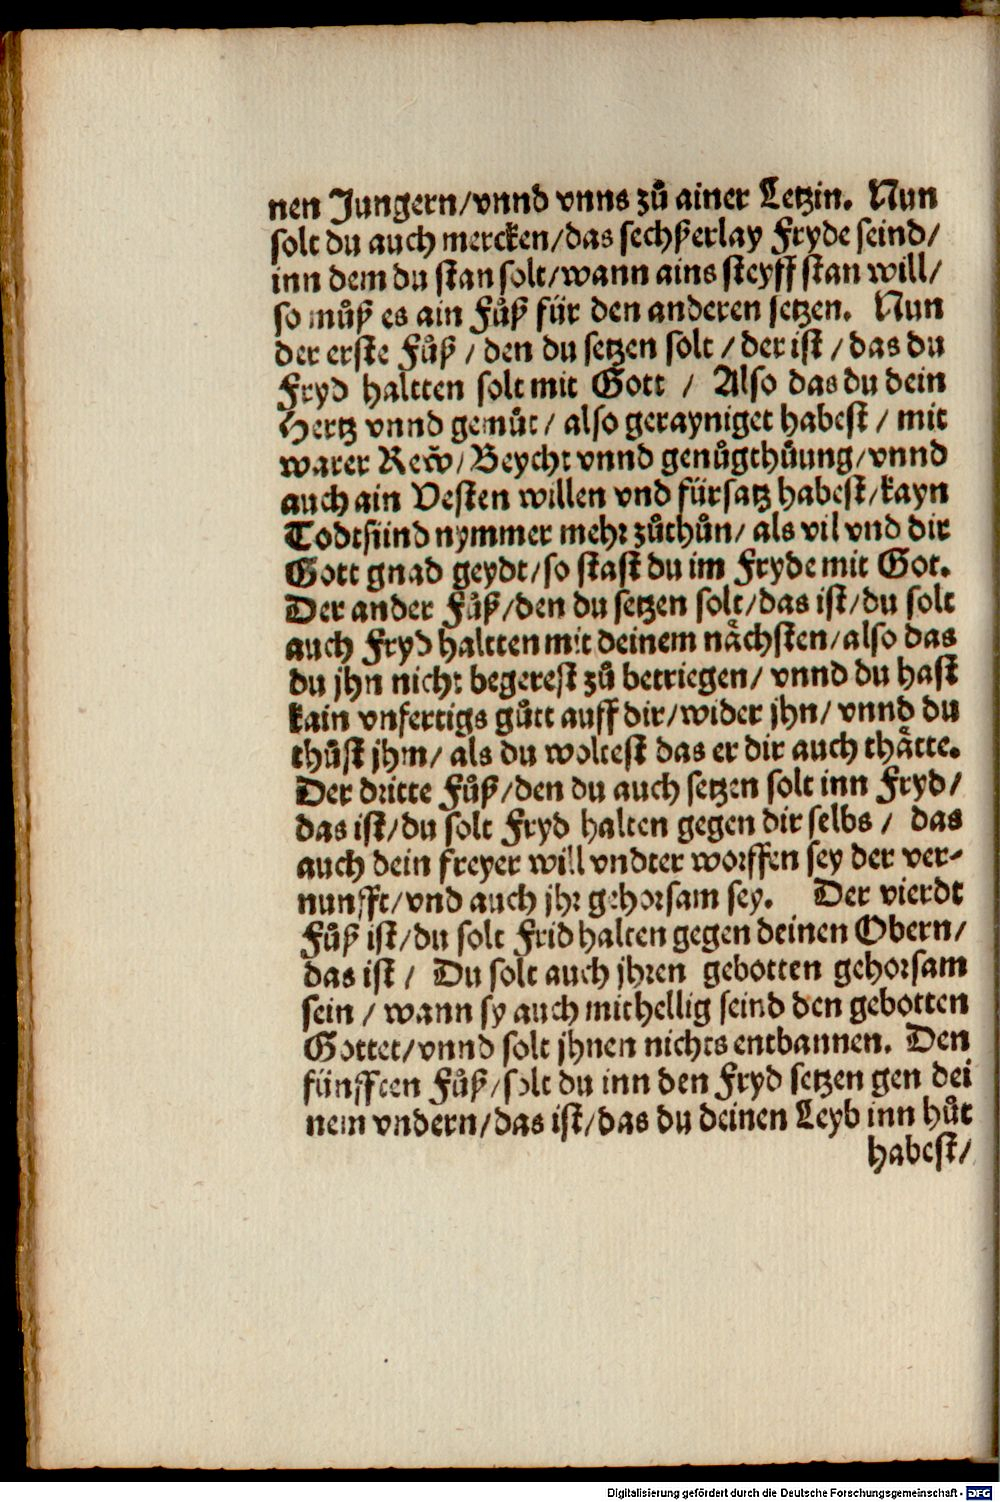 nen Jungern/vnnd vnns zů ainer Letzin. Nun
solt du auch mercken/das sechßerlay Fryde seind/
inn dem du stan solt/wann ains steyff stan will/
so můß es ain Fůß für den anderen setzen. Nun
der erste Fůß / den du setzen solt / der ist / das du
Fryd haltten solt mit Gott / Also das du dein
Hertz vnnd gemůt / also gerayniget habest / mit
warer Rew̃/ Beycht vnnd genůgthůung/vnnd
auch ain Vesten willen vnd fürsatz habest/kayn
Todtsünd nymmer mehr zůthůn/ als vil vnd dir
Gott gnad geydt/so stast du im Fryde mit Got.
Der ander Fůß/den du setzen solt/das ist/du solt
auch Fryd haltten mit deinem nåchsten/also das
du jhn nicht begerest zů betriegen/ vnnd du hast
kain vnfertigs gůtt auff dir/wider jhn/ vnnd du
thůst jhm/ als du woltest das er dir auch thåtte.
Der dritte Fůß/den du auch setzen solt inn Fryd/
das ist/du solt Fryd halten gegen dir selbs / das
auch dein freyer will vndter worffen sey der ver-
nunfft/vnd auch jhr gehorsam sey. Der vierdt
Fůß ist/du solt Frid halten gegen deinen Obern/
das ist / Du solt auch jhren gebotten gehorsam
sein / wann sy auch mithellig seind den gebotten
Gottet/vnnd solt jhnen nichts entbannen. Den
fünfften Fůß/solt du inn den Fryd setzen gen dei
nem vndern/das ist/das du deinen Leyb inn hůt
habest/
Digitalisierung gefördert durch die Deutsche Forschungsgemeinschaft - DFG